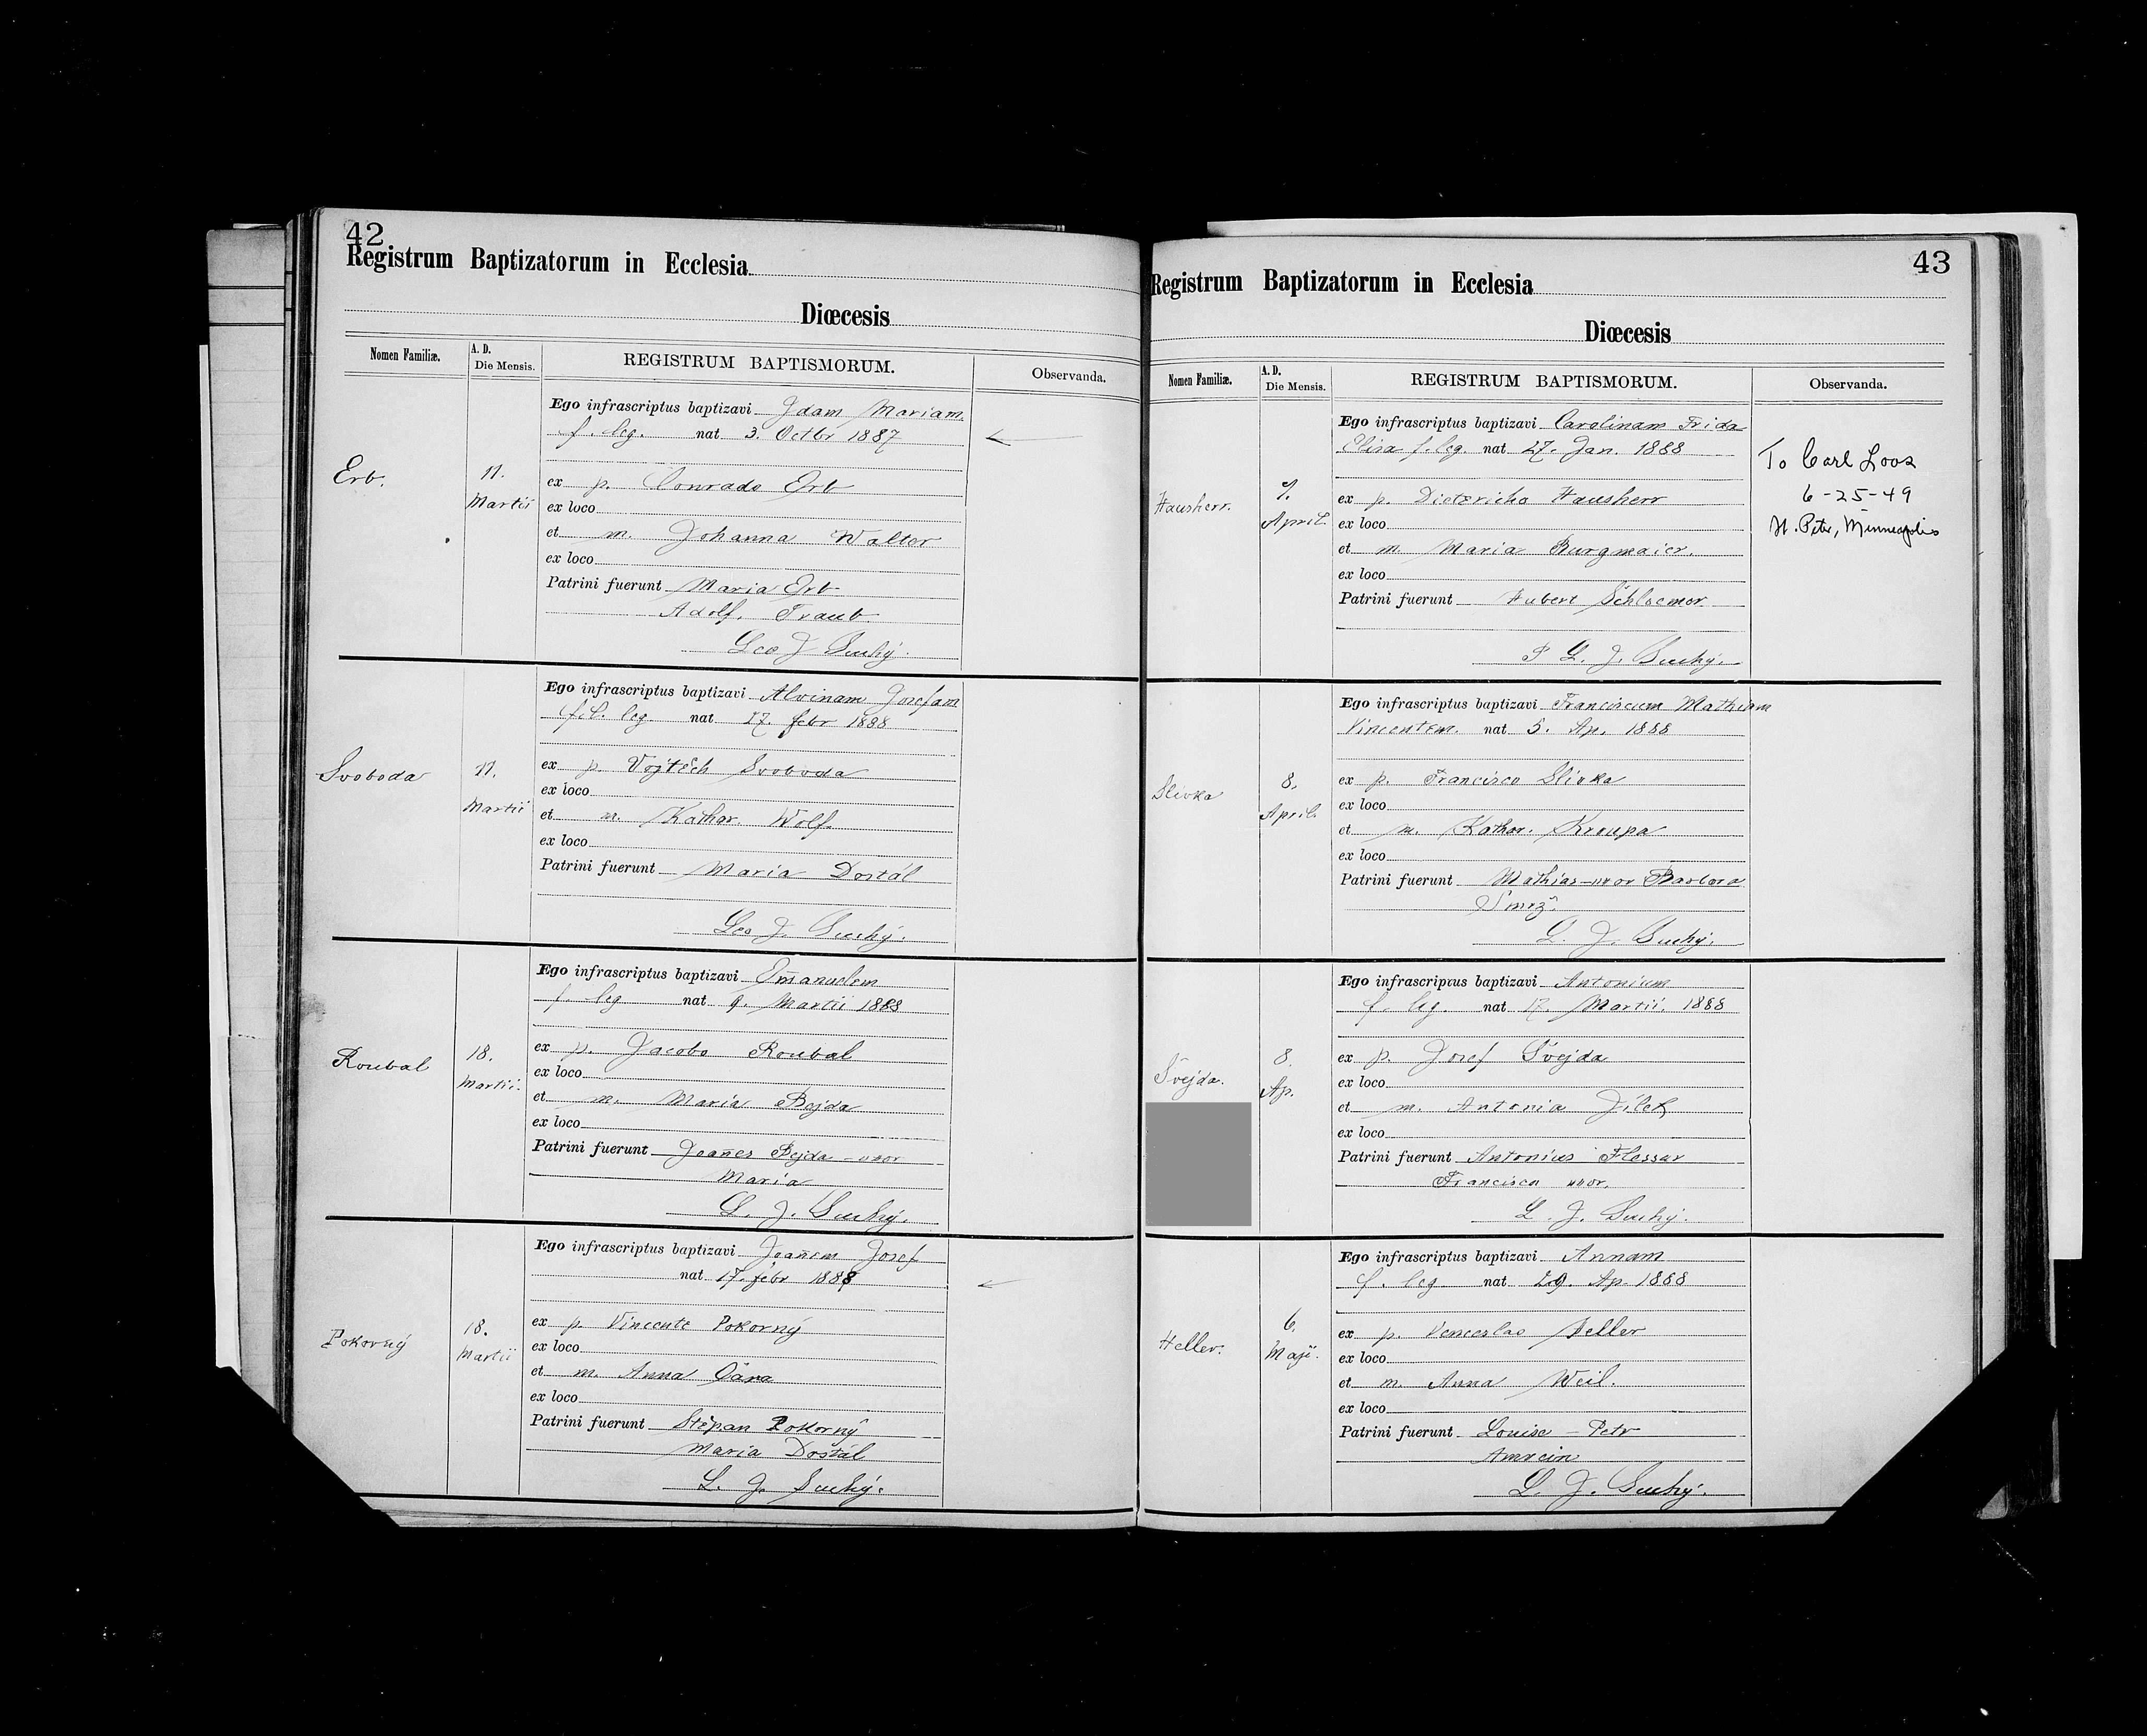 42
Registrum Baptizatorum in Ecclesia
Diœcesis
Nomen Familiæ.
A. D.
Die Mensis.
REGISTRUM BAPTISMORUM.
Observanda.
Erb.
11.
Martii
Ego infrascriptus baptizavi Idam Mariam
f. leg. nat 3. Octbr 1887
ex p. Conrado Erb
ex loco
et m. Johanna Walter
ex loco
Patrini fuerunt Maria Erb
Adolf. Traub
Leo J Suchý.
Svoboda
11.
Martii
Ego infrascriptus baptizavi Alvinam Josefam
fil. leg nat 27. febr 1888
ex p. Vojtěch Svoboda
ex loco
et m. Kathar. Wolf.
ex loco
Patrini fuerunt Maria Dostál
Leo J. Suchý.
Roubal
18.
Martii.
Ego infrascriptus baptizavi Em̄anuelem
f. leg nat 9. Martii 1888
ex p. Jacobo Roubal
ex loco
et m. Maria Bejda
ex loco
Patrini fuerunt Joan̄es Bejda - uxor
Maria
L. J. Suchý.
Pokorný
18.
Martii
Ego infrascriptus baptizavi Joan̄em Josef
nat 17. febr 1888
ex p. Vincente Pokorný
ex loco
et m. Anna
ex loco
Patrini fuerunt Štěpan Pokorný
Maria Dostál
L. J. Suchý.
43
Registrum Baptizatorum in Ecclesia
Diœcesis
Nomen Familiæ.
A. D.
Die Mensis.
REGISTRUM BAPTISMORUM.
Observanda.
Hausherr.
April.
Ego infrascriptus baptizavi Carolinam Frida
Elisa f. leg. nat 27. Jan. 1888
ex p. Dietericho Hausherr
ex loco
et m. Maria Burgmaier.
ex loco
Patrini fuerunt Hubert
P L. J. Suchý.
To Carl Loos
6-25-49
St. Peter, Minneapolis
Slivka
8.
April.
Ego infrascriptus baptizavi Franciscum Mathiam
Vincentem. nat 5. Ap. 1888
ex p. Francisco Slivka
ex loco
et m. Kathar. Kroupa
ex loco
Patrini fuerunt Mathias - uxor Barbora
L. J. Suchý.
Švejda.
8.
Ap.
Ego infrascriptus baptizavi Antonium
f. leg. nat 17. Martii. 1888
ex p. Josef Švejda
ex loco
et m. Antonia Jílek
ex loco
Patrini fuerunt Antonius Flessar
Francisca uxor.
L. J. Suchý.
Heller.
6.
Maji.
Ego infrascriptus baptizavi Annam
f. leg nat 29. Ap. 1888
ex p. Venceslao Heller
ex loco
et m. Anna Weil.
ex loco
Patrini fuerunt Louise - Petr
Amrein
L. J. Suchý.